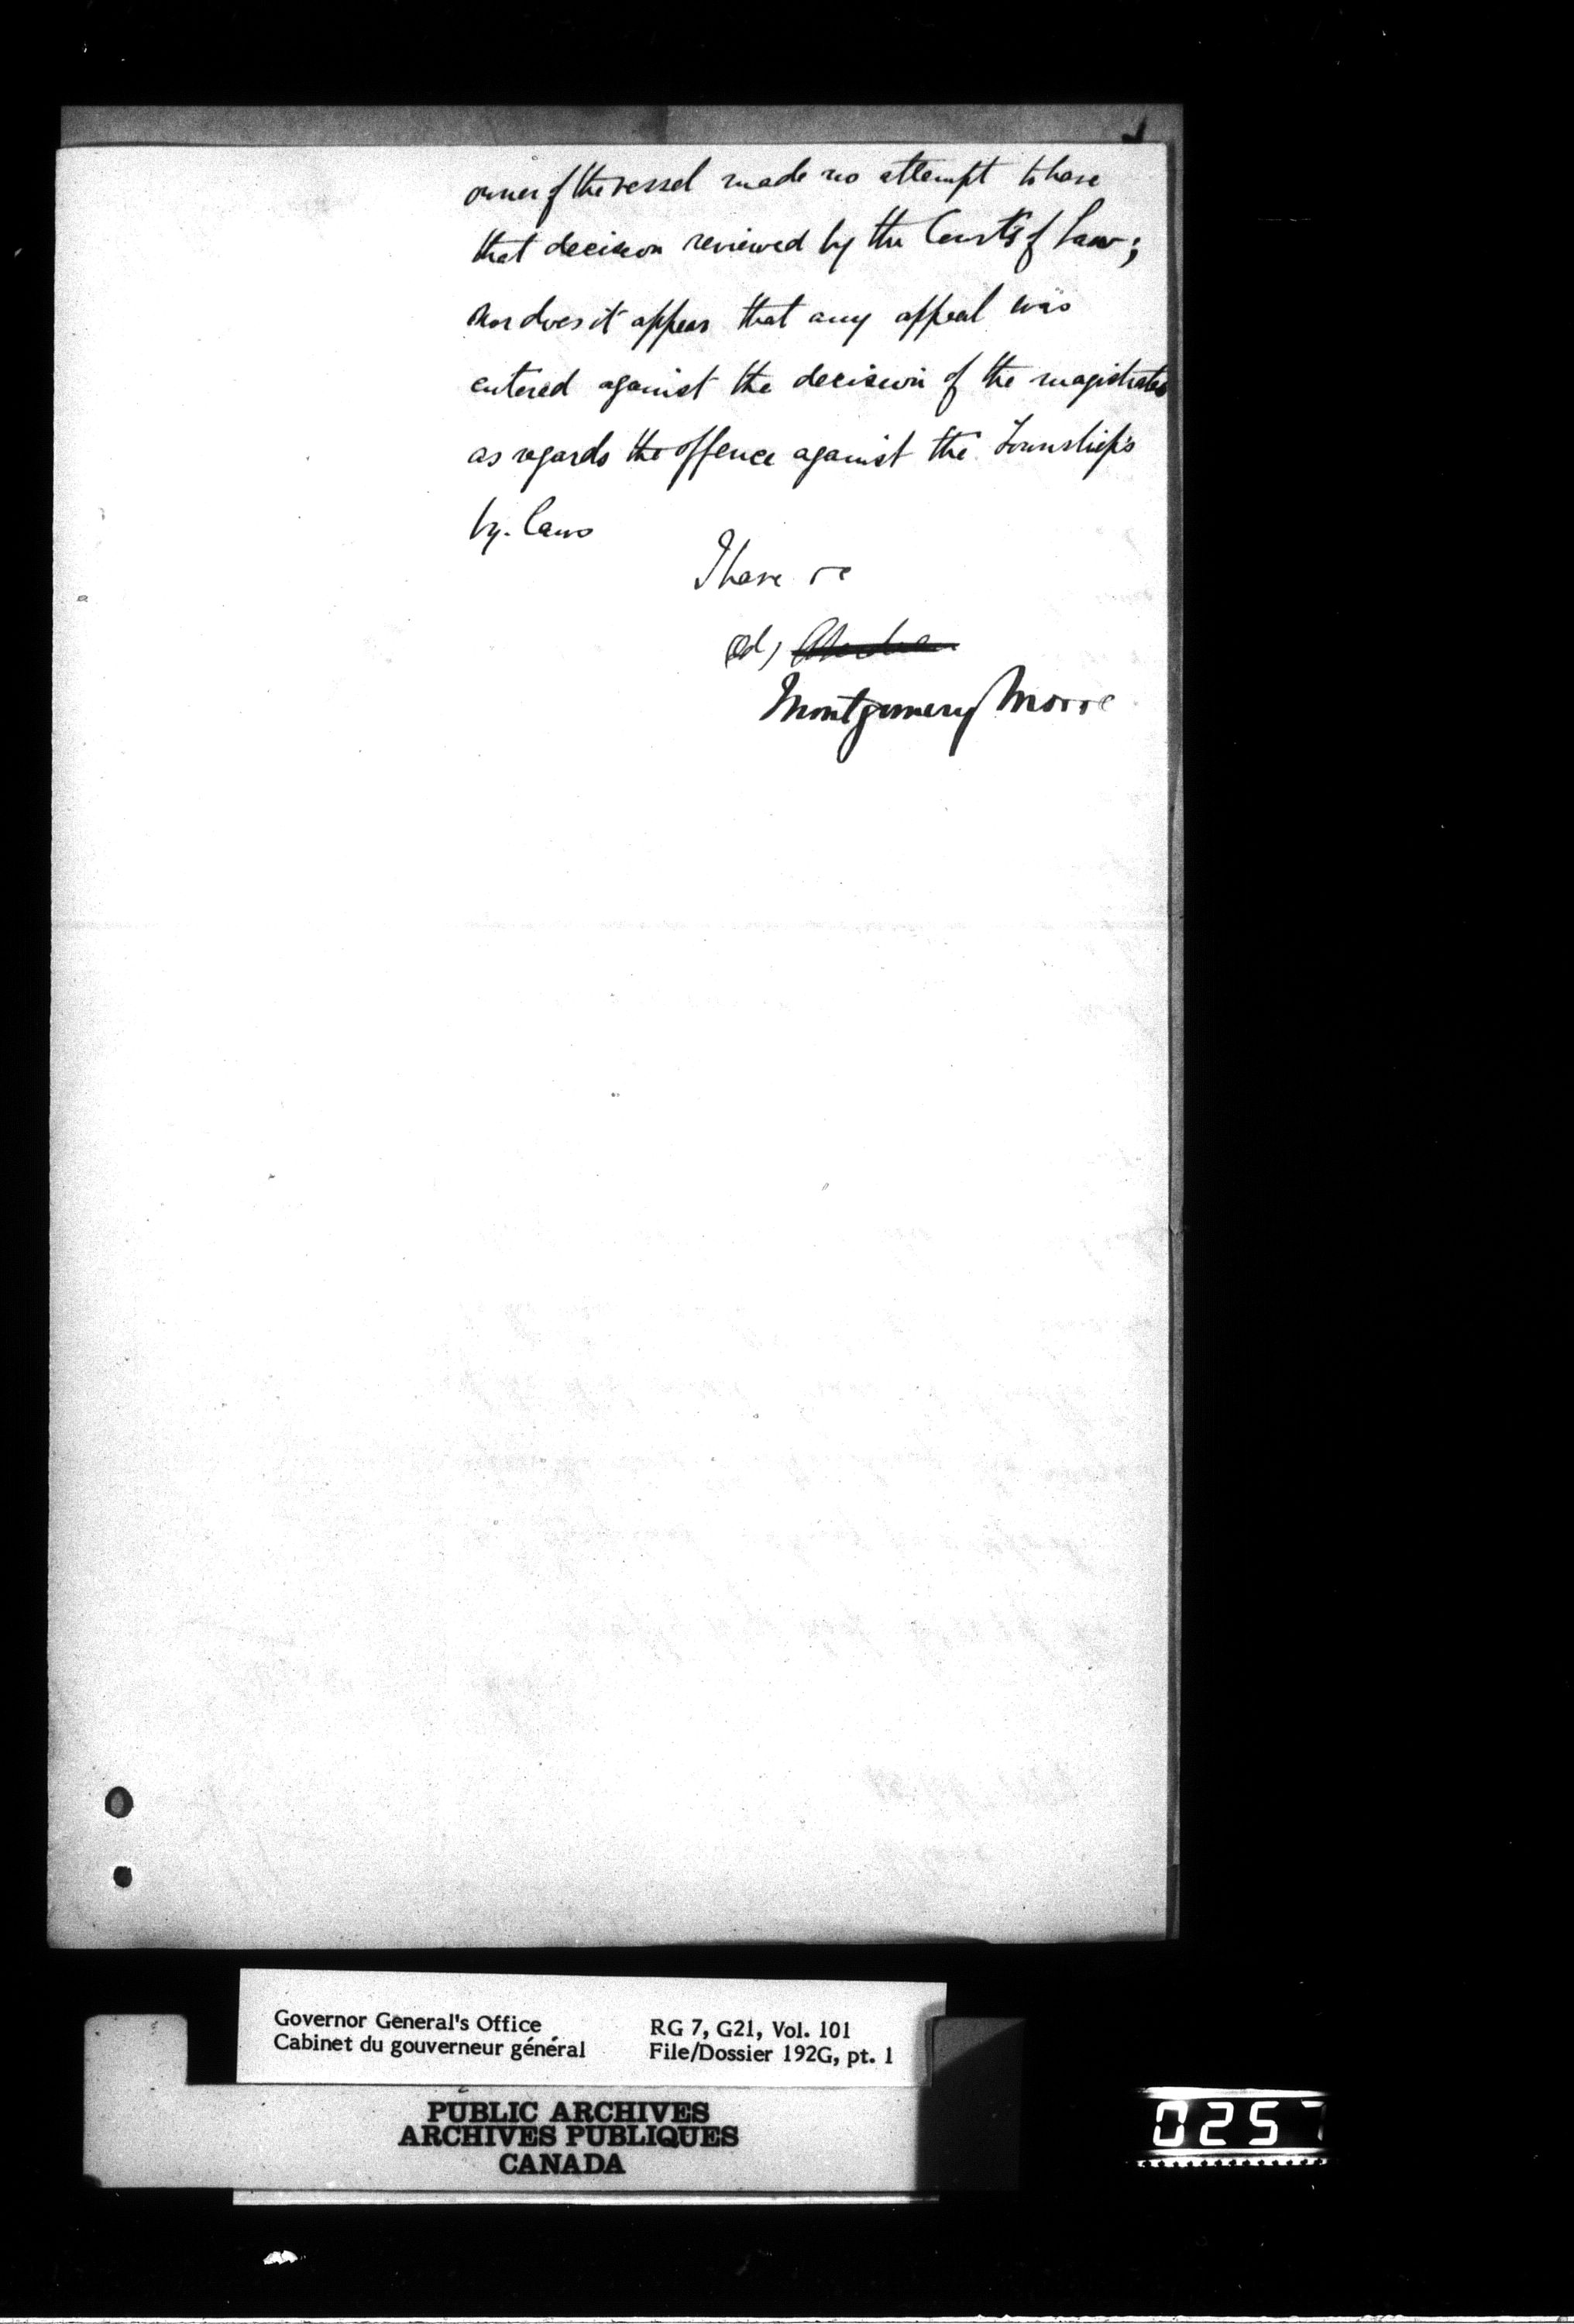 owner of the vessel made no attempt to have
that decision reviewed by the Courts of Law;
nor does it appear that any appeal was
entered against the decision of the magistrates
as regards the offence against the Township's
by-laws
I have &c
(Sd) Aberdeen
Montgomery Moore
Governor General's Office
Cabinet du gouverneur général
RG 7, G21, Vol. 101
File/Dossier 192G, pt. 1
PUBLIC ARCHIVES
ARCHIVES PUBLIQUES
CANADA
0257